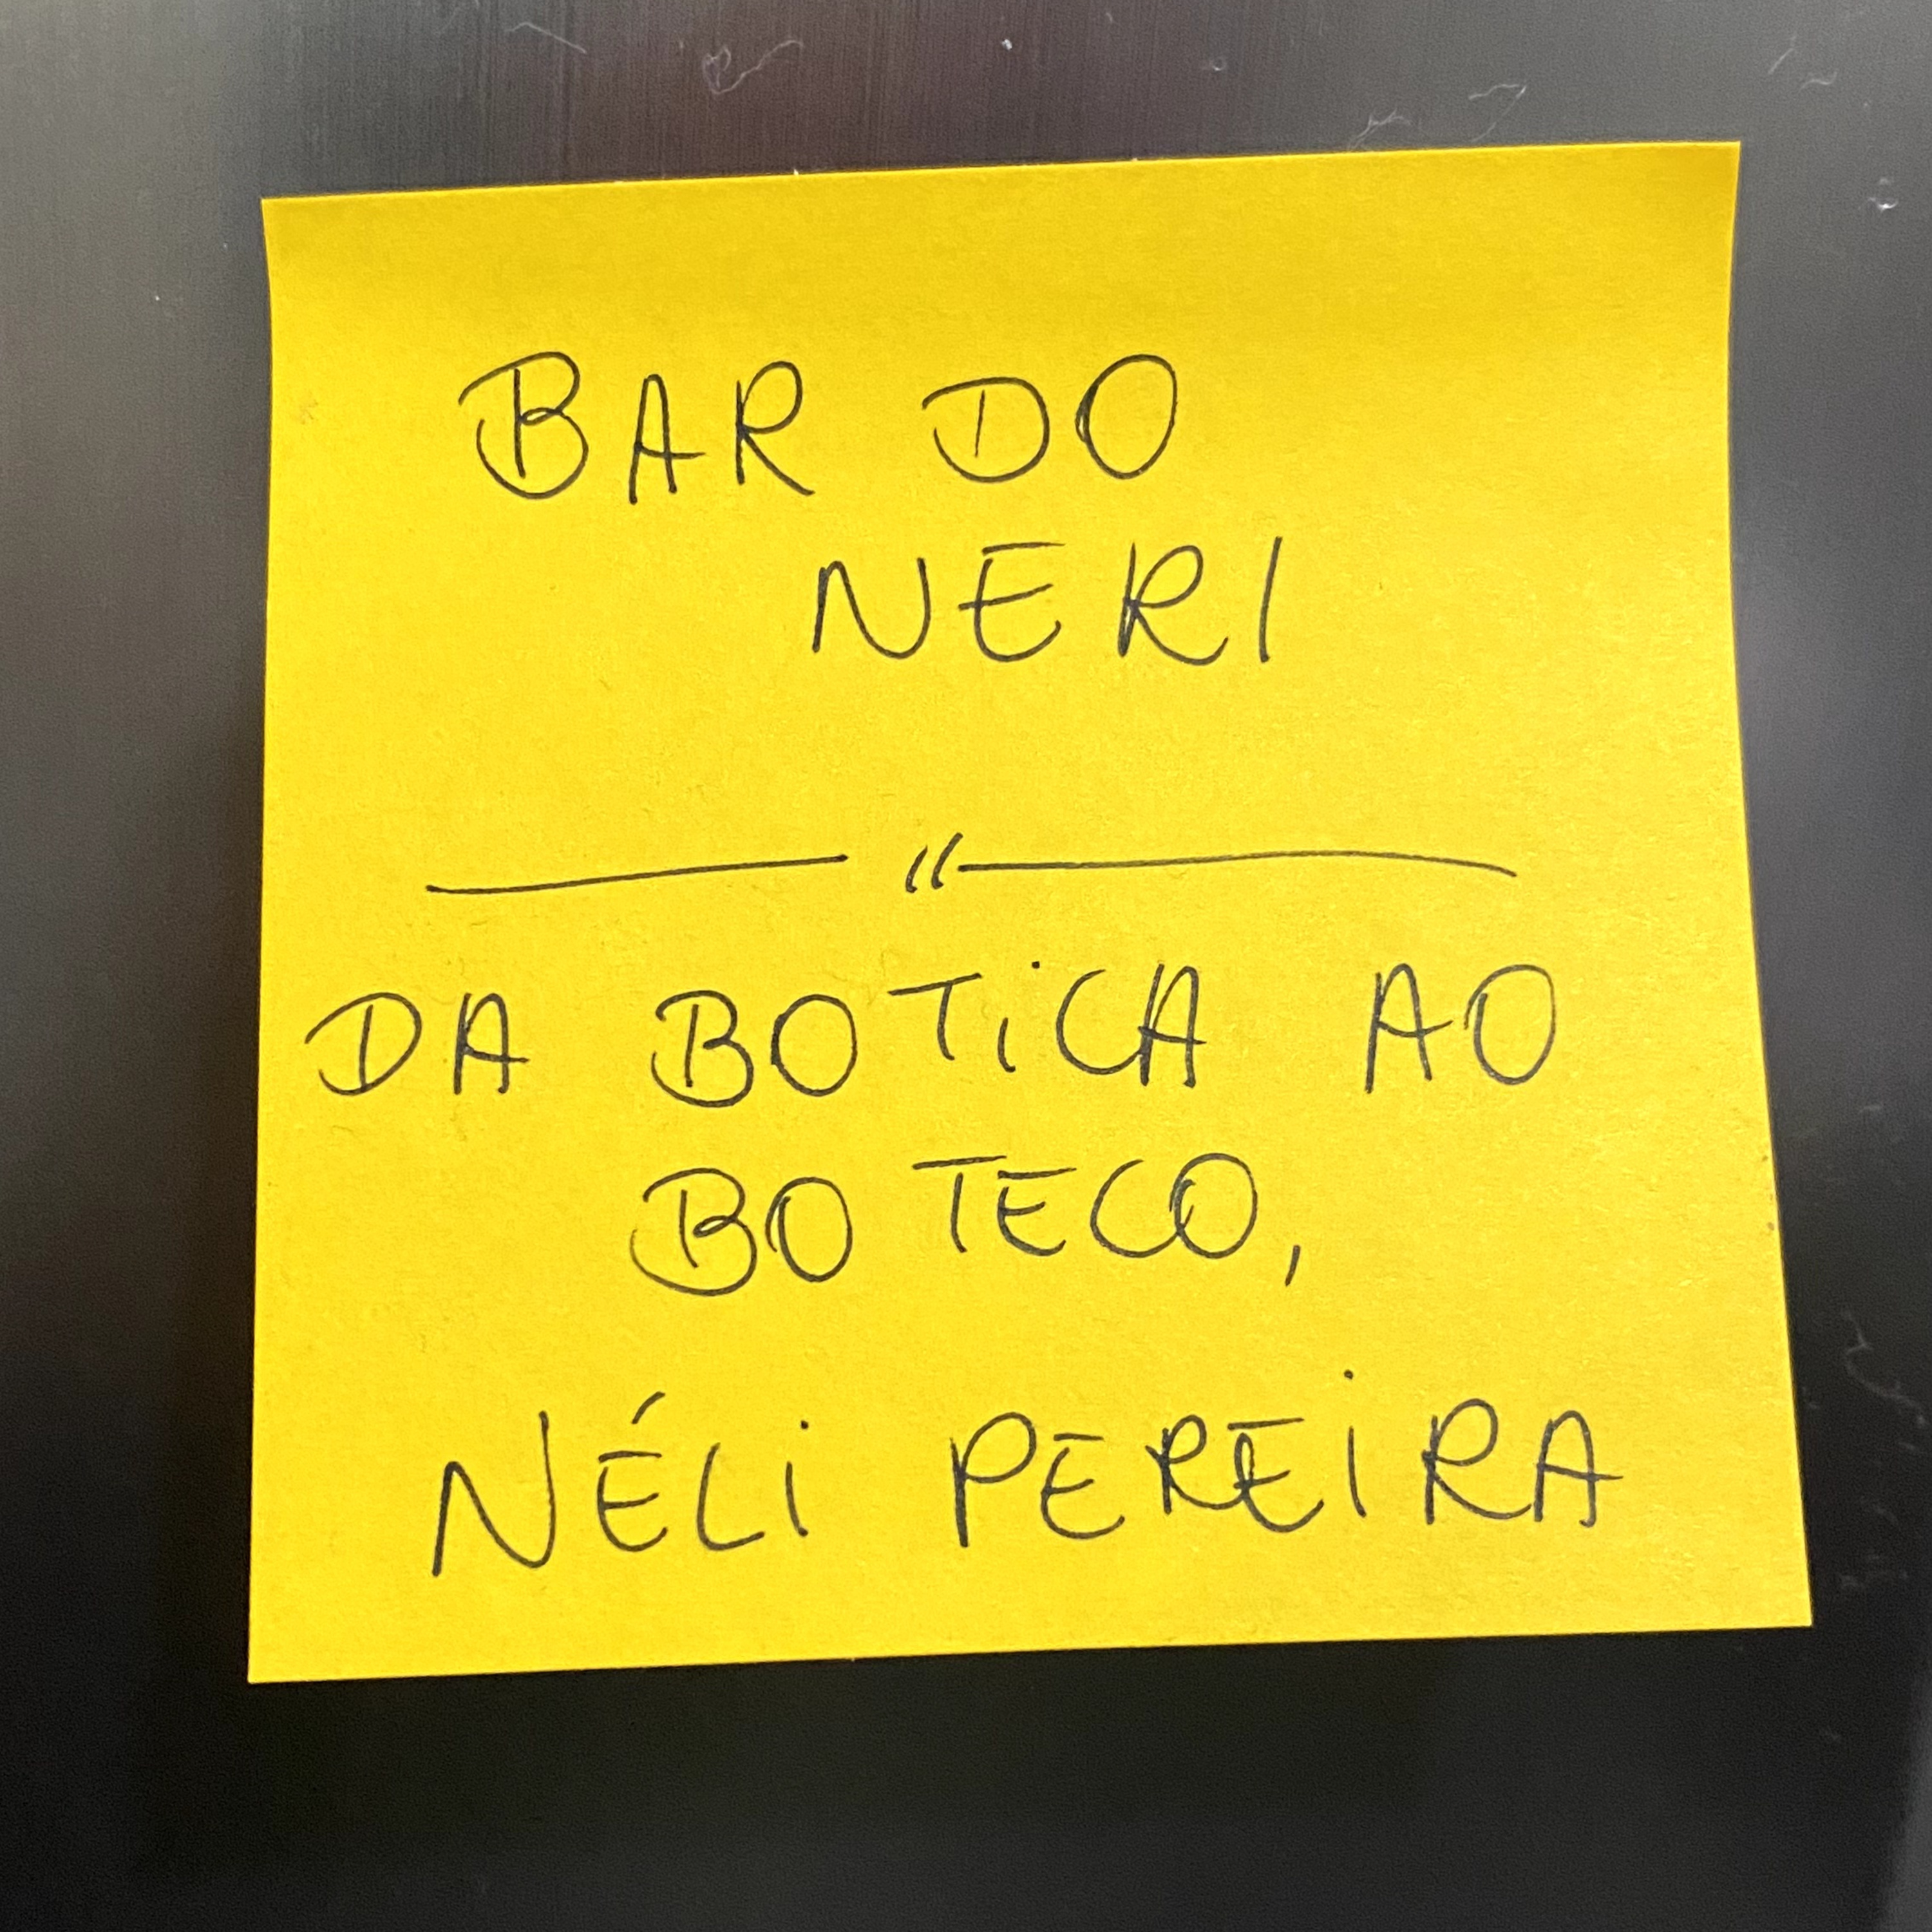 BAR DO
NERI
—— // ——
DA BOTiCA AO
BOTECO,
NÉLi PEREiRA